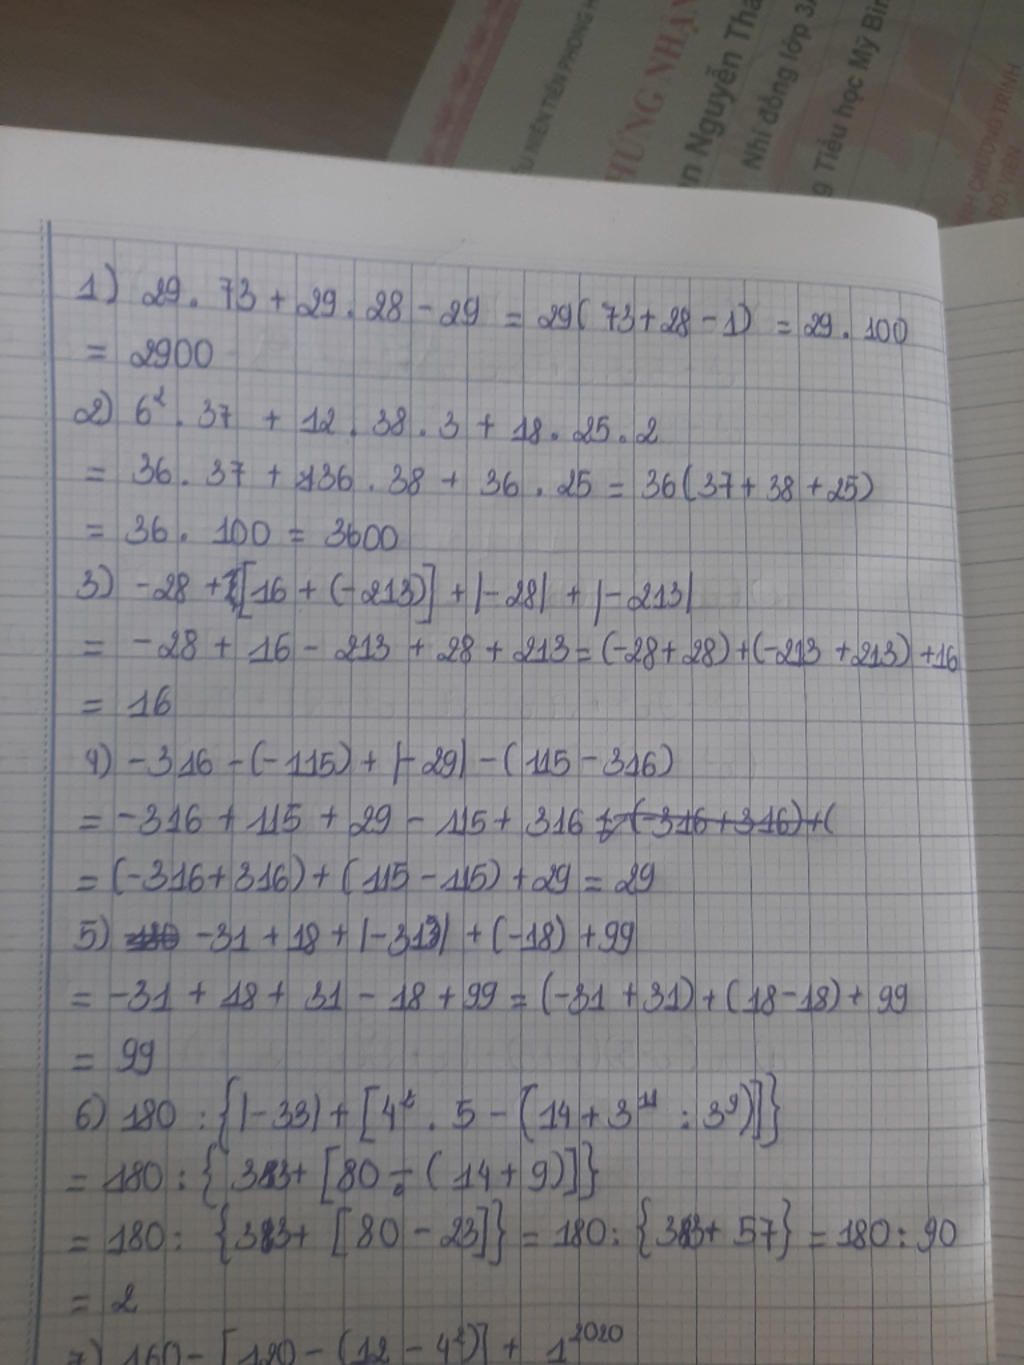 CHỨNG NHẬN
Nguyễn
Nhi đồng lớp
Tiểu học Mỹ
1) 29. 73 + 29. 28 - 29 = 29( 73+28 - 1) = 29. 100
= 2900
2) 6². 37 + 12. 38. 3 + 18. 25. 2
= 36. 37 + 36. 38 + 36. 25 = 36(37+38+25)
= 36. 100 = 3600
3) -28 + [16 + (-213)] + |-28| + |-213|
= -28 + 16 - 213 + 28 + 213 = (-28+28)+(-213+213)+16
= 16
4) -316 - (-115) + |-29| - (115 - 316)
= -316 + 115 + 29 - 115 + 316
= (-316+316) + (115 - 115) + 29 = 29
5) -31 + 18 + |-31| + (-18) + 99
= -31 + 18 + 31 - 18 + 99 = (-31 + 31) + (18 - 18) + 99
= 99
6) 180 : {|-33| + [4². 5 - (14 + 3¹¹ : 3⁹)]}
= 180 : { 33 + [80 - (14 + 9)]}
= 180 : {33 + [80 - 23]} = 180 : {33 + 57} = 180 : 90
= 2
7) 160 - [120 - (12 - 4²)] + 1²⁰²⁰